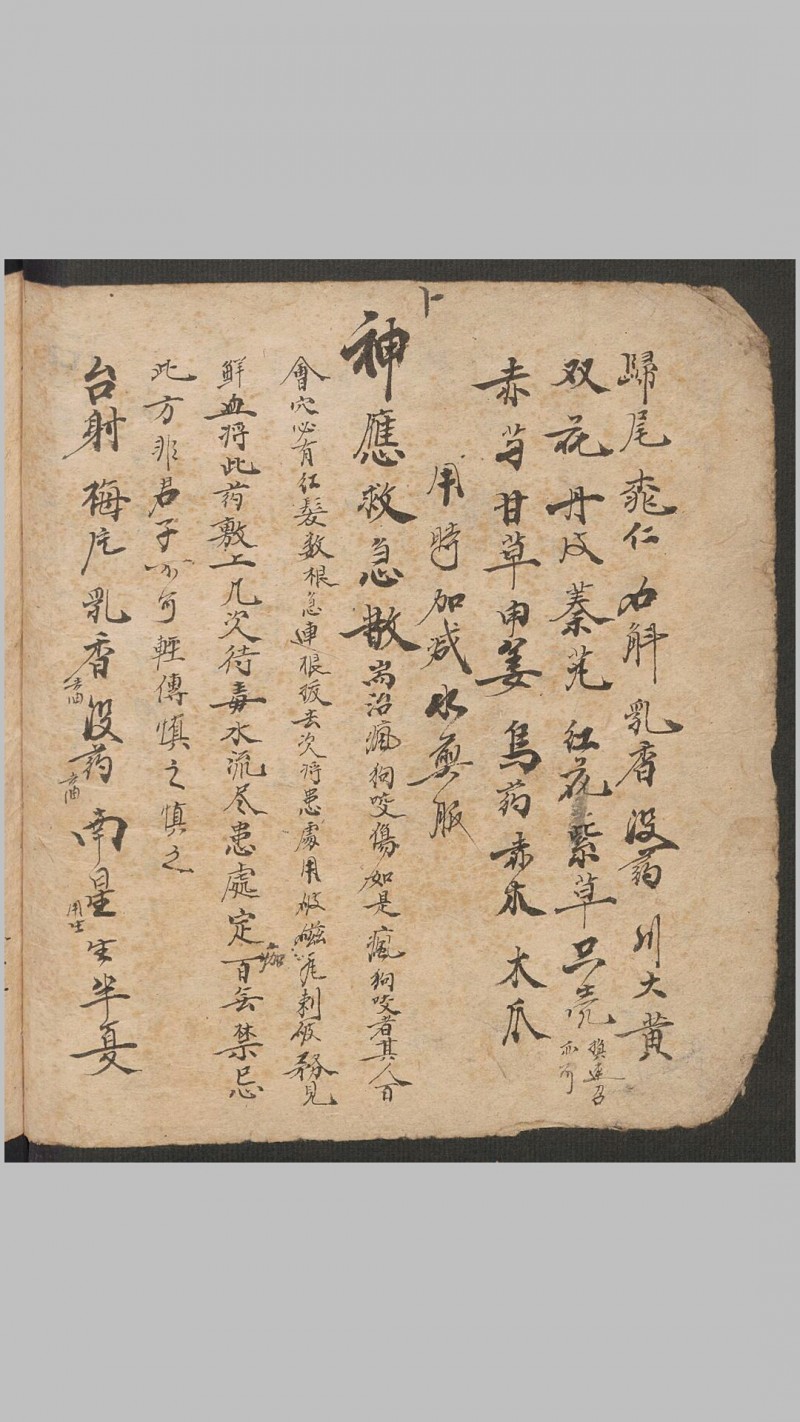 歸尾 桃仁 力解 乳香 没药 川大黄
双花 丹皮 蓁艽 红花 紫草 只壳
亦可
赤芍 甘草 申姜 烏药 赤木 木爪
用時加减水煎服
卜
神應救急散 耑治瘋狗咬傷如是瘋狗咬者其人百
會穴必有红髮数根急連根拔去次将患處用破磁瓦刺破務見
鮮血将此药敷上几次待毒水流尽患處定痂百無禁忌
此方非君子不可輕傳慎之慎之
台射 梅片 乳香去油 没药去油 南星用生 生半夏